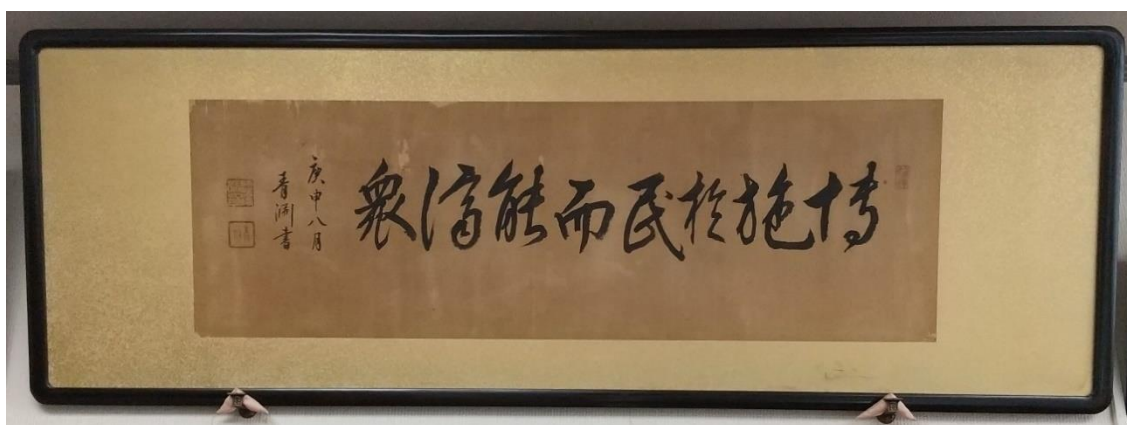 博施於民而能済衆
庚申八月
青淵書